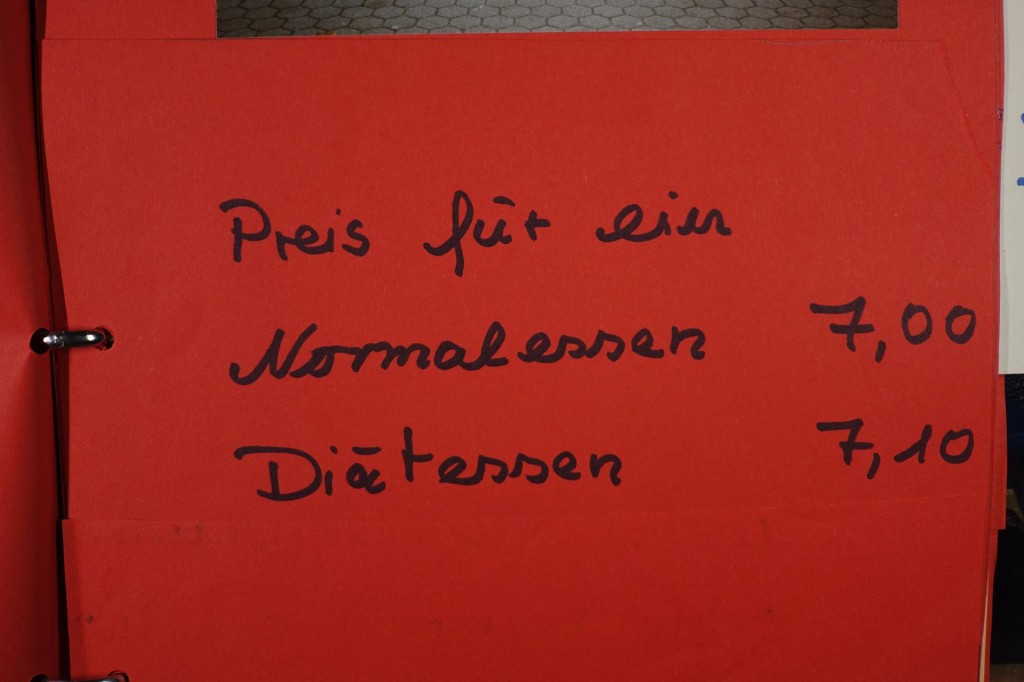 Preis für ein
Normalessen 7,00
Diätessen 7,10